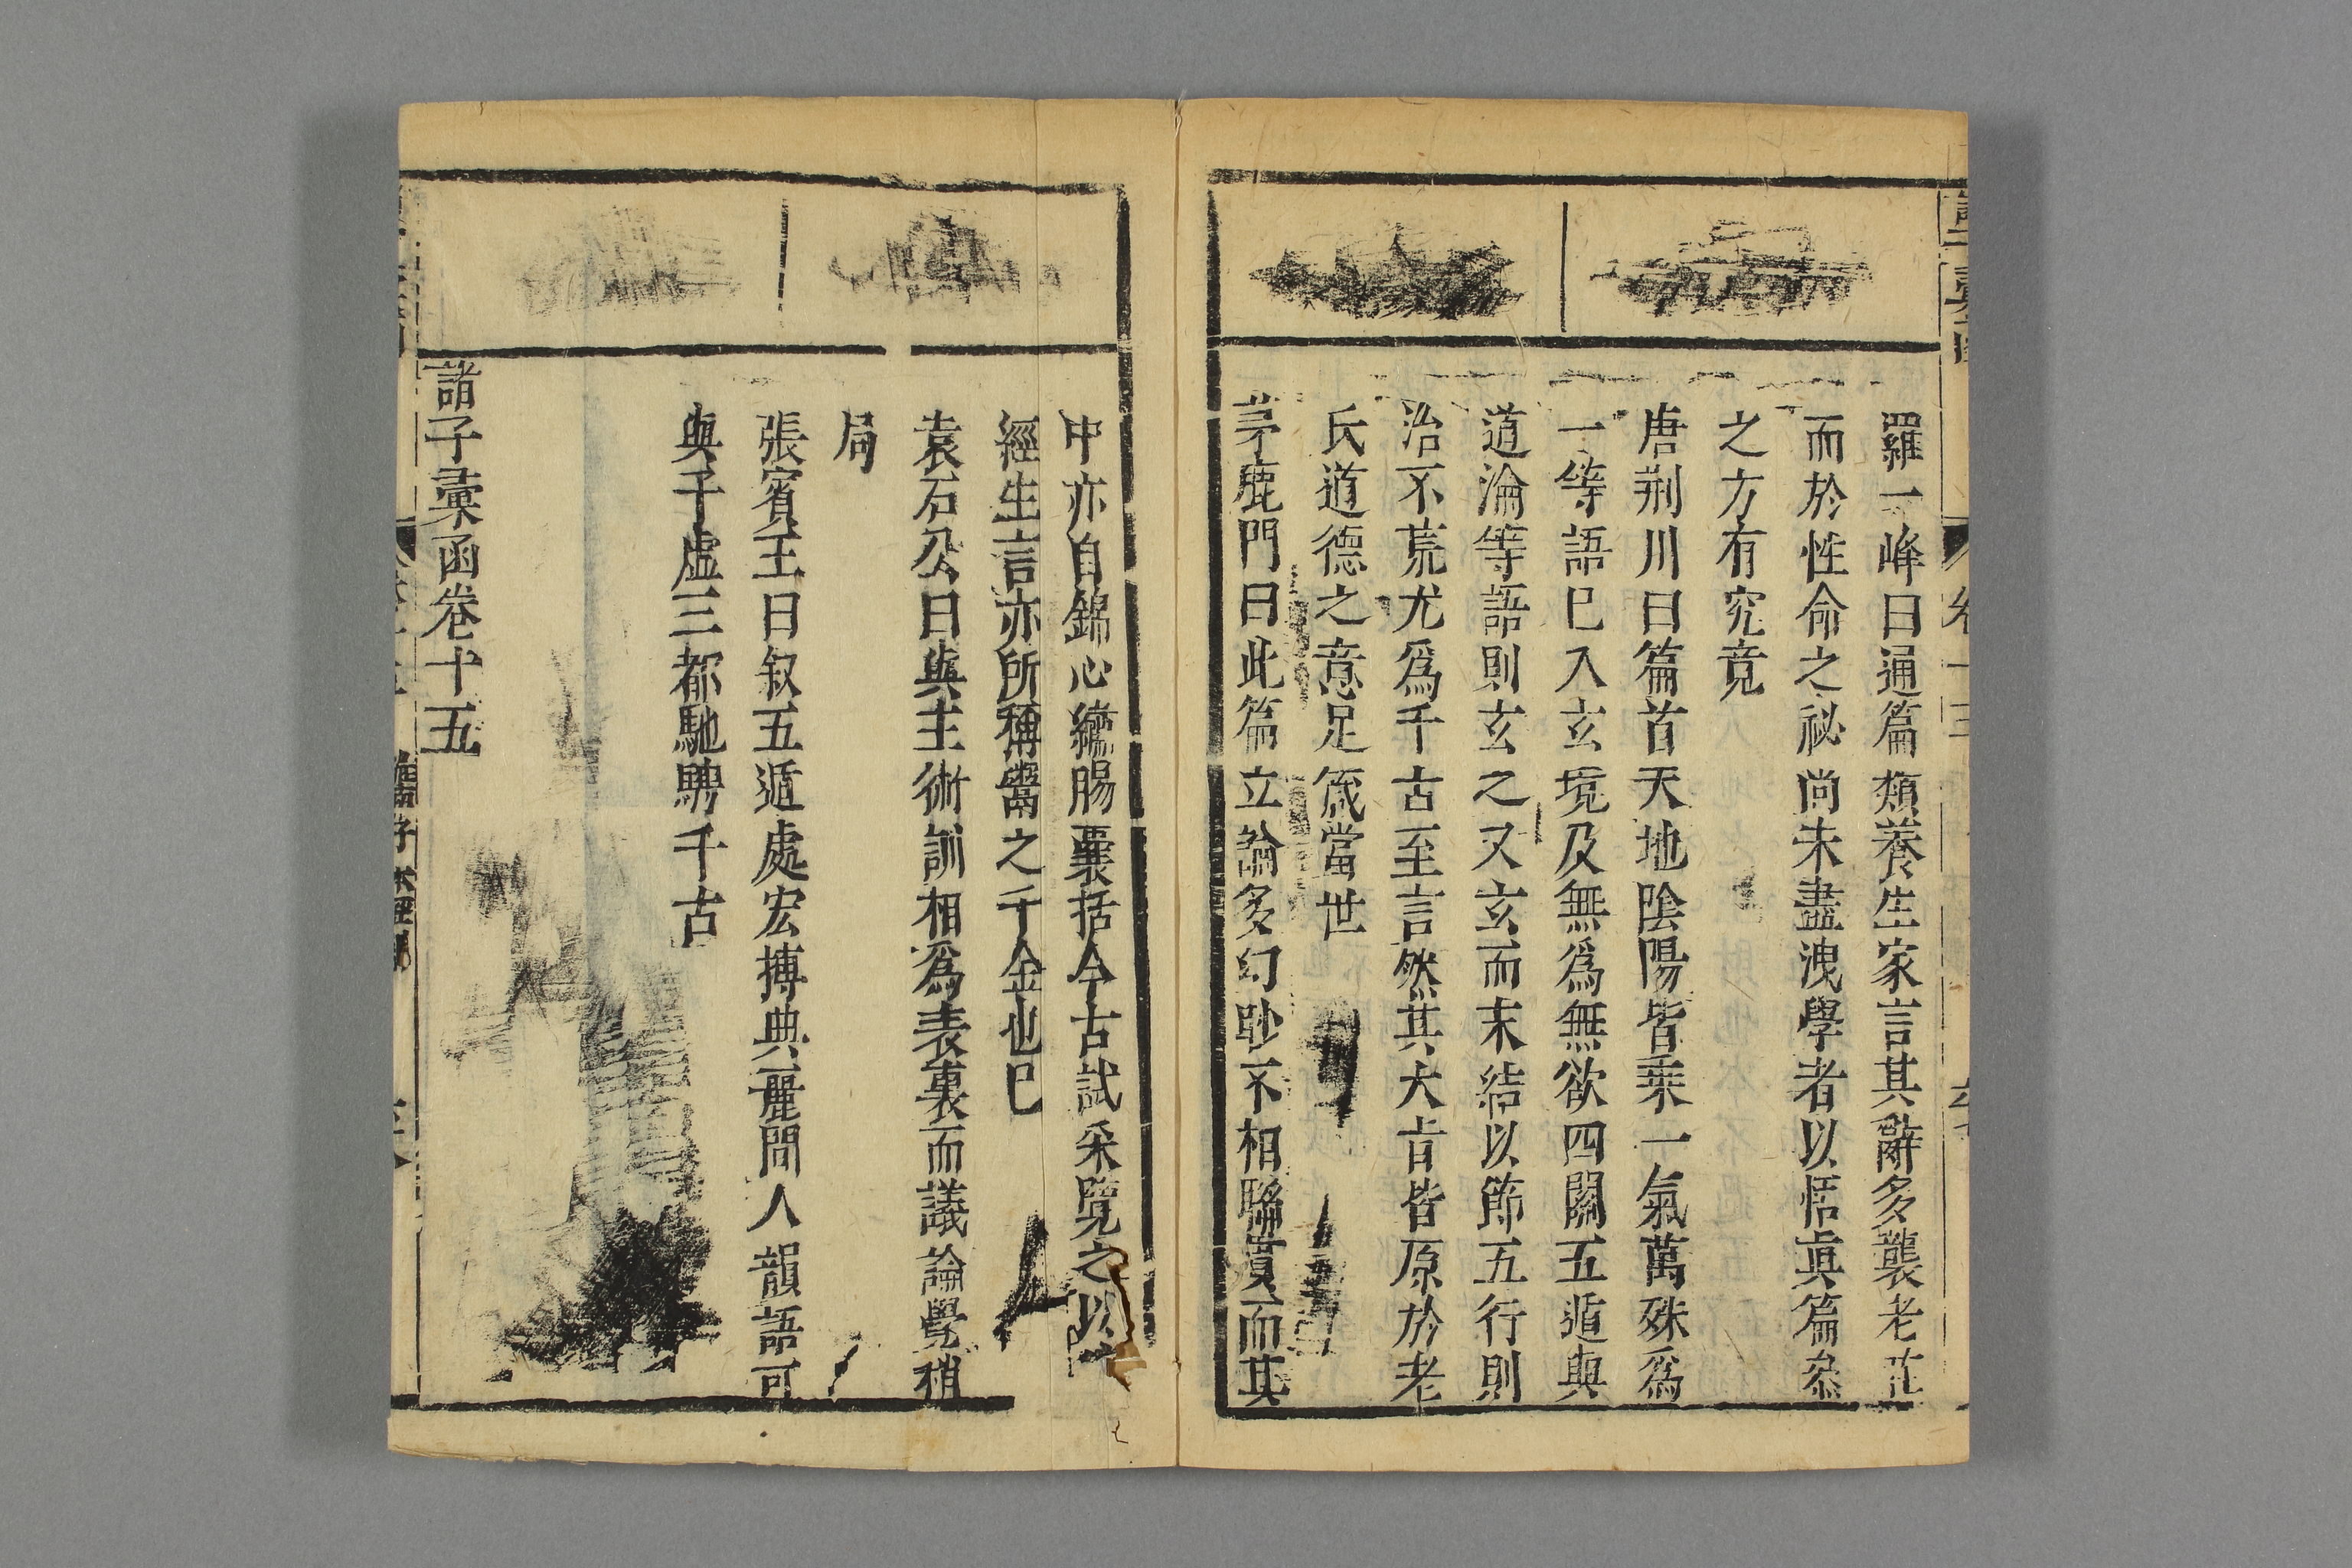 羅一峰曰通篇類養生家言其辭多襲老莊
而於性命之祕尚未盡洩學者以悟眞篇叅
之方有究竟
唐荆川曰篇首天地陰陽皆乘一氣萬殊爲
一等語已入玄境及無爲無欲四關五遁與
道淪等語則玄之又玄而末結以節五行則
治不荒尤爲千古至言然其大旨皆原於老
氏道德之意足箴當世
茅鹿門曰此篇立論多幻眇不相聯貫而其
中亦自錦心繡腸囊括今古試采覽之以
經生言亦所稱臠之千金也已
袁石公曰與主術訓相爲表裏而議論覺稍
局
張賓王曰叙五遁處宏摶典麗間人韻語可
與子虛三都馳騁千古
諸子彙函卷十五